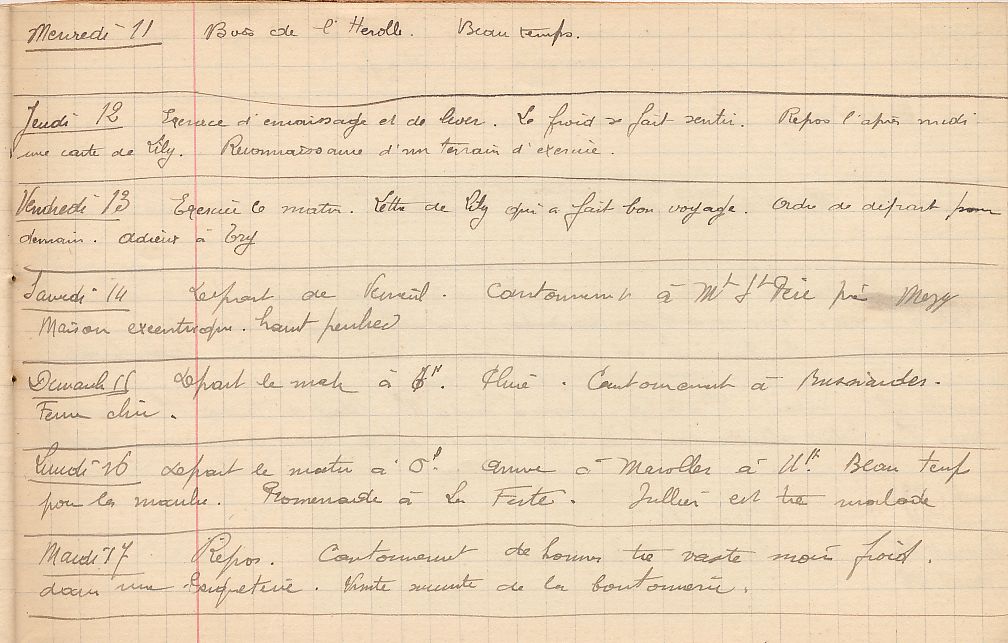 Mercredi 11 Bois de l'Herolle. Beau temps.
Jeudi 12 Exercice d'emoussage et de lever. Le froid se fait sentir. Repos l'après midi
une carte de Lily. Reconnaissance d'un terrain d'exercice.
Vendredi 13 Exercice le matin. Lettre de Lily qui a fait bon voyage. Ordre de départ pour
demain. Adieux à Try
Samedi 14 Départ de Verneuil. Cantonnement à Mt St Père près Mezy
Maison excentrique. haut perchée
Dimanche 15 Départ le matin à Pluie. Cantonnement à Bussiardes.
Ferme
Lundi 16 Départ le matin à arrivée à Marolles à 11h. Beau temps
pour la marche. Promenade à La Ferte. Jullien est très malade
Mardi 17 Repos. Cantonnement de hommes très vaste mais froid.
dans une briqueterie. Visite de la boutonnerie.